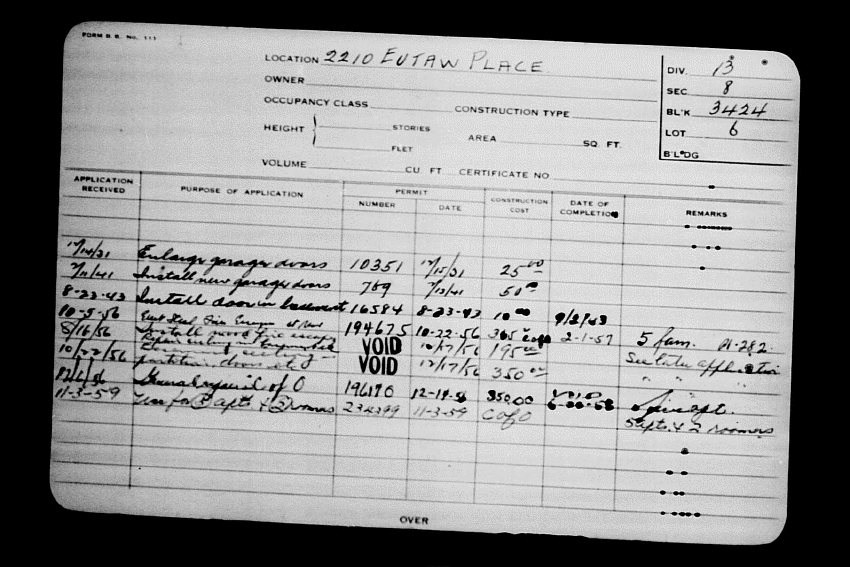 FORM B. B. No. 111
LOCATION 2210 EUTAW PLACE
OWNER
OCCUPANCY CLASS CONSTRUCTION TYPE
HEIGHT STORIES AREA SQ. FT.
FLET
VOLUME CU. FT. CERTIFICATE NO
DIV. 13
SEC. 8
BL'K 3424
LOT 6
B'LDG
APPLICATION RECEIVED PURPOSE OF APPLICATION PERMIT NUMBER DATE CONSTRUCTION COST DATE OF COMPLETION REMARKS
Enlarge garage doors 10351 12/15/31 25.00
7/11/41 Install new garage doors 769 7/13/41 50.00
8-23-43 Install door in basement 16584 8-23-43 10.00
10-5-56 194675 10-22-56 2-1-57 5 fam.
8/16/56 Install VOID 10/17/56 195.00 See later application
10/22/56 partition, doors, etc VOID 12/17/56 350.00 " "
12/6/56 General repair 196170 350.00
11-3-59 Use for apts & 2 roomers 234399 11-3-59 C of O 5 apts. & 2 roomers
OVER